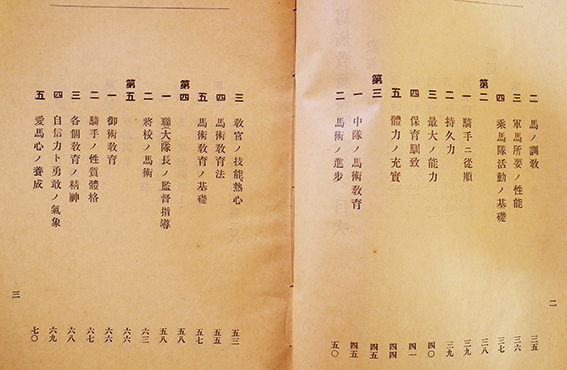 二 馬ノ調敎 三五
三 軍馬所要ノ性能 三六
四 乘馬隊活動ノ基礎 三七
第二 三八
一 騎手ニ從順 三九
二 持久力 三九
三 最大ノ能力 四〇
四 保育馴致 四一
五 體力ノ充實 四四
第三 四五
一 中隊ノ馬術敎育 四五
二 馬術ノ進步 五〇
二
三 敎官ノ技能熱心 五三
四 馬術敎育法 五五
五 馬術敎育ノ基礎 五七
第四 五八
一 聯大隊長ノ監督指導 五八
二 將校ノ馬術 六三
第五 六六
一 御術敎育 六六
二 騎手ノ性質體格 六七
三 各個敎育ノ精神 六八
四 自信力ト勇敢ノ氣象 六九
五 愛馬心ノ養成 七〇
三